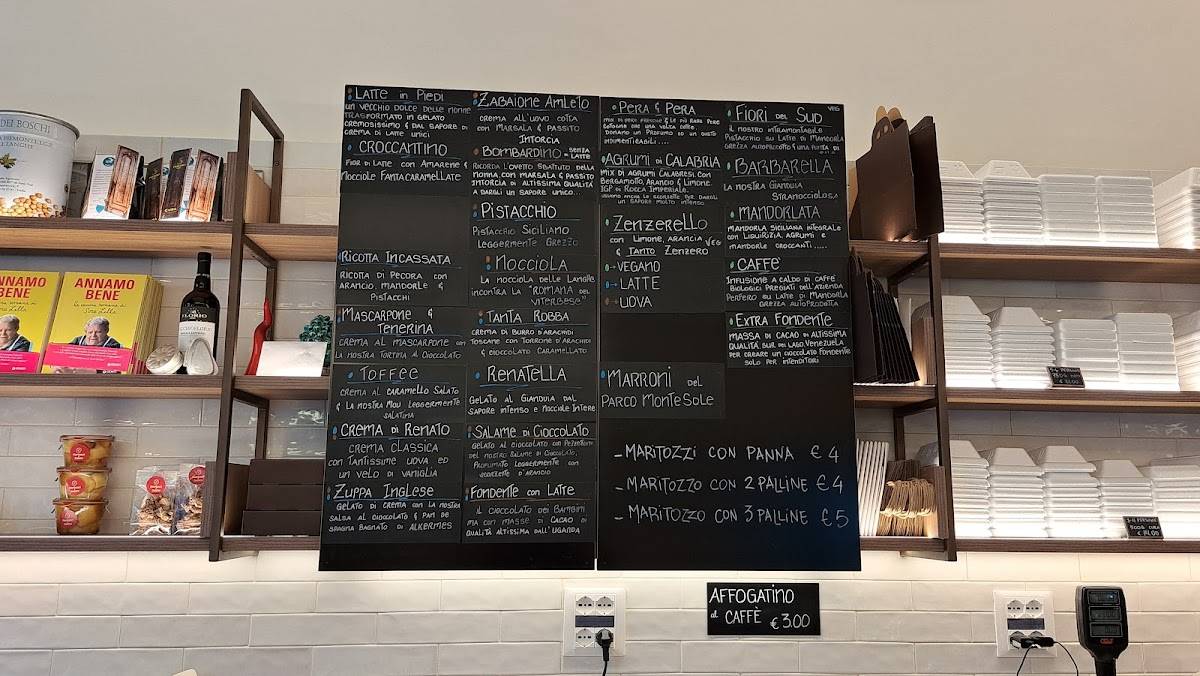 DEI BOSCHI
ANNAMO
BENE
ANNAMO
BENE
FLORIO
LATTE in PIEDI
UN VECCHIO DOLCE DELLE NONNE
TRASFORMATO IN GELATO
CREMOSISSIMO & DAL SAPORE DI
CREMA DI LATTE UNICI
CROCCANTINO
FIOR DI LATTE CON AMARENE &
NOCCIOLE FANTACARAMELLATE
RICOTTA INCASSATA
RICOTTA DI PECORA CON
ARANCIO, MANDORLE &
PISTACCHI
MASCARPONE &
TENERINA
CREMA AL MASCARPONE CON
LA NOSTRA TORTINA AL CIOCCOLATO
TOFFEE
CREMA AL CARAMELLO SALATO
& LA NOSTRA MOU LEGGERMENTE
SALATINA
CREMA DI RENATO
CREMA CLASSICA
CON TANTISSIME UOVA ED
UN VELO DI VANIGLIA
ZUPPA INGLESE
GELATO DI CREMA CON LA NOSTRA
SALSA AL CIOCCOLATO & PAN DI
SPAGNA BAGNATO DI ALKERMES
ZABAIONE AMLETO
CREMA ALL'UOVO COTTA
CON MARSALA & PASSITO
INTORCIA
BOMBARDINO SENZA LATTE
RICORDA L'OVETTO SBATUTO DELLA
NONNA, CON MARSALA & PASSITO
INTORCIA DI ALTISSIMA QUALITÀ
A DARGLI UN SAPORE UNICO...
PISTACCHIO
PISTACCHIO SICILIANO
LEGGERMENTE GREZZO
NOCCIOLA
LA NOCCIOLA DELLE LANGHE
INCONTRA LA "ROMANA DEL
VITERBESE"
TANTA ROBBA
CREMA DI BURRO D'ARACHIDI
TOSCANE CON TORRONE D'ARACHIDI
& CIOCCOLATO CARAMELLATO
RENATELLA
GELATO AL GIANDUIA DAL
SAPORE INTENSO E NOCCIOLE INTERE
SALAME DI CIOCCOLATO
GELATO AL CIOCCOLATO CON PEZZETTONI
DEL NOSTRO SALAME DI CIOCCOLATO,
PROFUMATO LEGGERMENTE CON
SCORZETTE D'ARANCIO
FONDENTE CON LATTE
IL CIOCCOLATO DEI BAMBINI
MA CON MASSE DI CACAO DI
QUALITÀ ALTISSIMA DALL'UGANDA
PERA & PERA
DONIAMO UN PROFUMO ED UN GUSTO
INDIMENTICABILI....
AGRUMI DI CALABRIA
MIX DI AGRUMI CALABRESI CON
BERGAMOTTO, ARANCIO & LIMONE
IGP DI ROCCA IMPERIALE.
UN SAPORE MOLTO INTENSO
ZENZERELLO
CON LIMONE, ARANCIA VEG
& TANTO ZENZERO
- VEGANO
- LATTE
- UOVA
MARRONI DEL
PARCO MONTE SOLE
FIORI DEL SUD VEG
IL NOSTRO INTRAMONTABILE
PISTACCHIO SU LATTE DI MANDORLA
GREZZA AUTOPRODOTTO & UNA PUNTA DI
BARBARELLA
LA NOSTRA GIANDUIA
STRANOCCIOLOSA
MANDORLATA
MANDORLA SICILIANA INTEGRALE
CON LIQUIRIZIA, AGRUMI E
MANDORLE CROCCANTI.....
CAFFÈ
INFUSIONE A CALDO DI CAFFÈ
BIOLOGICI PREGIATI DELL'AZIENDA
PERFERO SU LATTE DI MANDORLA
GREZZA AUTOPRODOTTA
EXTRA FONDENTE
MASSA DI CACAO DI ALTISSIMA
QUALITÀ SUR DEL LAGO, VENEZUELA
PER CREARE UN CIOCCOLATO FONDENTE
SOLO PER INTENDITORI
- MARITOZZI CON PANNA € 4
- MARITOZZO CON 2 PALLINE € 4
- MARITOZZO CON 3 PALLINE € 5
AFFOGATINO
al CAFFÈ € 3.00